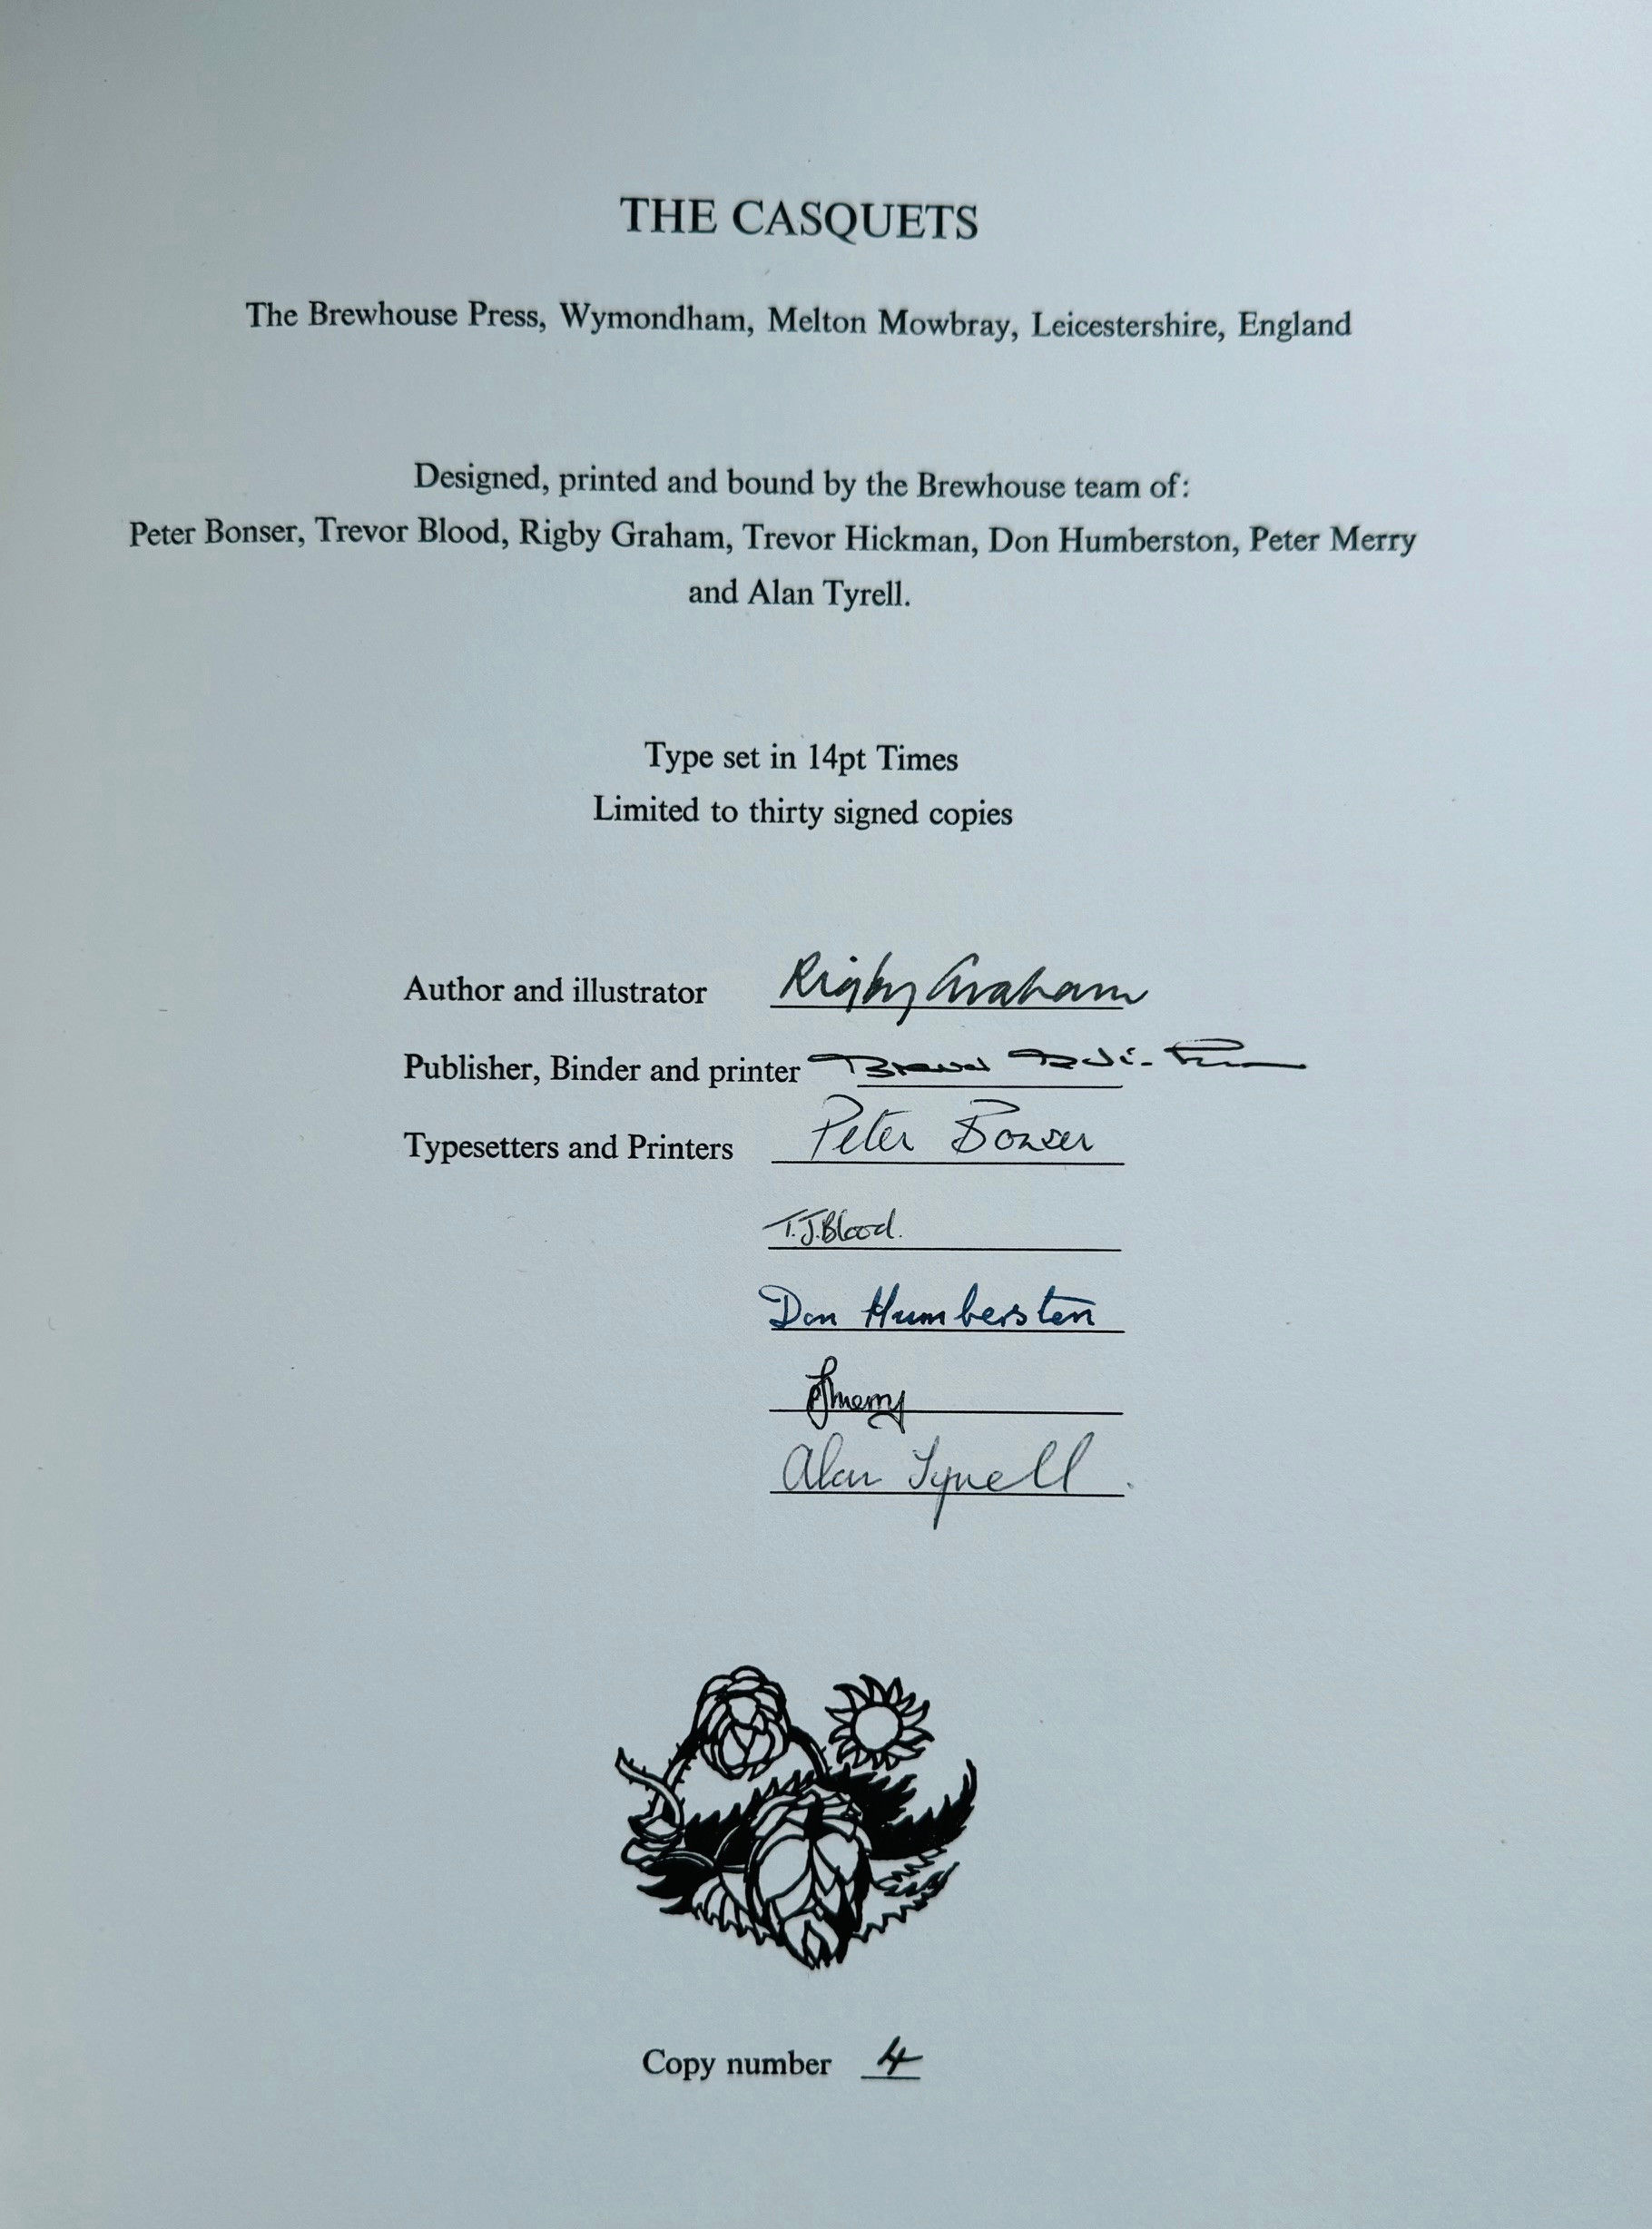 THE CASQUETS
The Brewhouse Press, Wymondham, Melton Mowbray, Leicestershire, England
Designed, printed and bound by the Brewhouse team of:
Peter Bonser, Trevor Blood, Rigby Graham, Trevor Hickman, Don Humberston, Peter Merry
and Alan Tyrell.
Type set in 14pt Times
Limited to thirty signed copies
Author and illustrator Rigby Graham
Publisher, Binder and printer
Typesetters and Printers Peter Bonser
T.J.Blood.
Don Humberston
PJMerry
Alan Tyrell.
Copy number 4